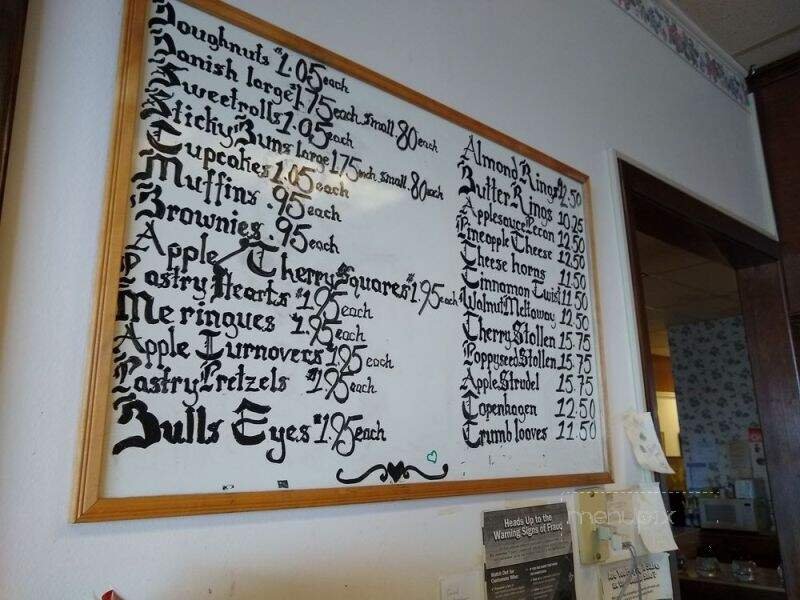 Doughnuts $1.05 each
Danish large $1.75 each small .80 each
Sweetrolls 1.05 each
Sticky Buns large 1.75 each small .80 each
Cupcakes 1.05 each
Muffins .95 each
Brownies .95 each
Apple/Cherry Squares $1.95 each
Pastry Hearts $1.95 each
Meringues $1.95 each
Apple Turnovers $1.95 each
Pastry Pretzels $1.95 each
Bulls Eyes $1.95 each
Almond Rings $12.50
Butter Rings 10.25
Applesauce Pecan 12.50
Pineapple Cheese 12.50
Cheese horns 11.50
Cinnamon Twist 11.50
Walnut Meltaway 12.50
Cherry Stollen 15.75
Poppyseed Stollen 15.75
Apple Strudel 15.75
Copenhagen 12.50
Crumb looves 11.50
Heads Up to the
Warning Signs of Fraud
menupix